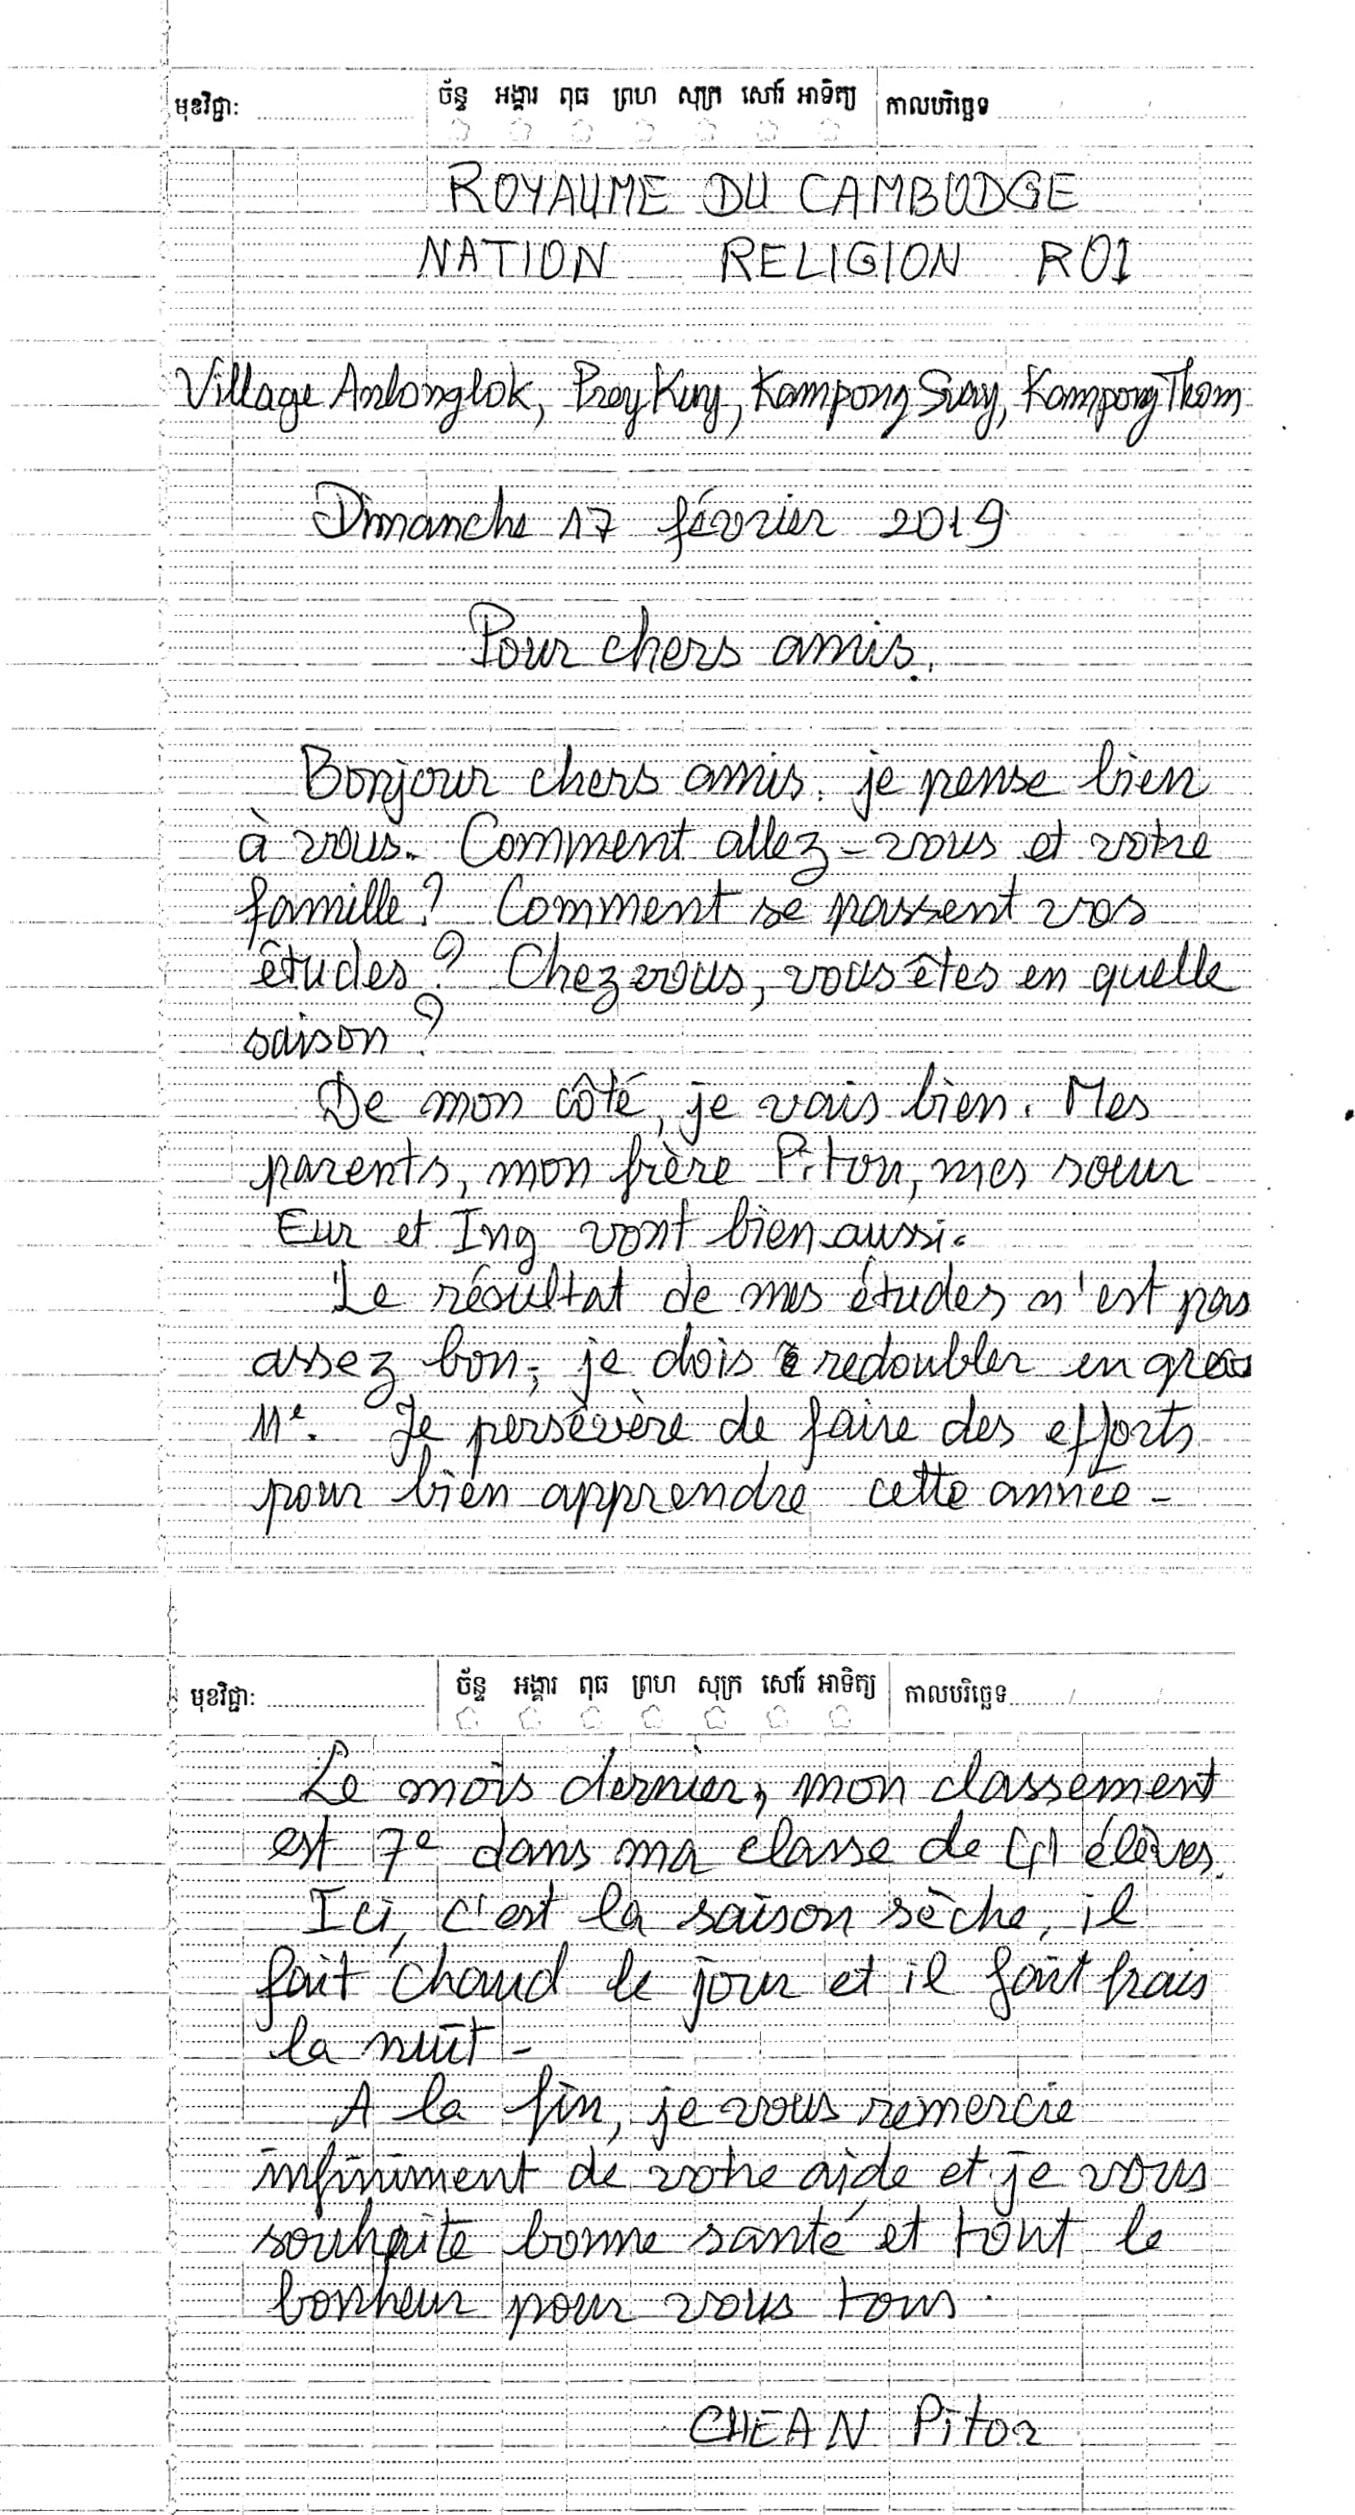 មុខវិជ្ជា: ច័ន្ទ អង្គារ ពុធ ព្រហ សុក្រ សៅរ៍ អាទិត្យ កាលបរិច្ឆេទ
ROYAUME DU CAMBODGE
NATION RELIGION ROI
Village Anlonglok, Prey Kuy, Kampong Svay, Kampong Thom
Dimanche 17 février 2019
Pour chers amis.
Bonjour chers amis. je pense bien
à vous. Comment allez-vous et votre
famille? Comment se passent vos
études? Chez vous, vous êtes en quelle
saison?
De mon côté, je vais bien. Mes
parents, mon frère Pitou, mes soeur
Eur et Ing vont bien aussi.
Le résultat de mes études n'est pas
assez bon, je dois redoubler en
11e. Je persévère de faire des efforts
pour bien apprendre cette année-
មុខវិជ្ជា: ច័ន្ទ អង្គារ ពុធ ព្រហ សុក្រ សៅរ៍ អាទិត្យ កាលបរិច្ឆេទ
Le mois dernier, mon classement
est 7e dans ma classe de élèves.
Ici, c'est la saison sèche, il
fait chaud le jour et il fait frais
la nuit-
A la fin, je vous remercie
infiniment de votre aide et je vous
souhaite bonne santé et tout le
bonheur pour vous tous.
CHEAN Pitor